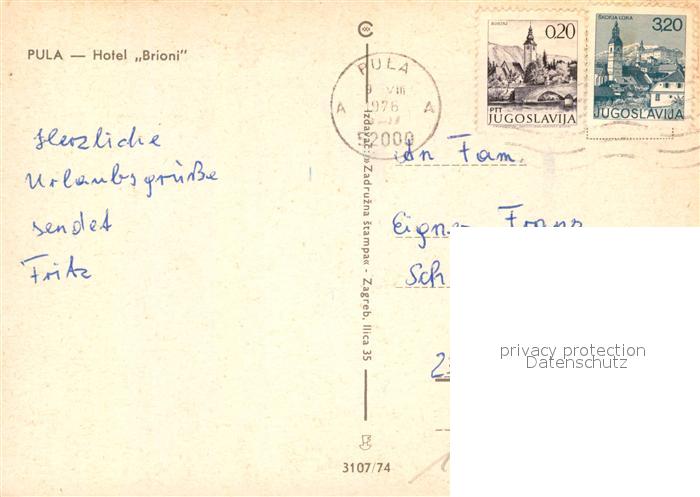 PULA — Hotel „Brioni"
Herzliche
Urlaubsgrüße
sendet
Fritz
Izdavač: »Zadružna štampa« - Zagreb, Ilica 35
3107/74
PULA
9 VIII
1976
A A
52000
BOHINJ
0,20
PTT
JUGOSLAVIJA
ŠKOFJA LOKA
3,20
JUGOSLAVIJA
An Fam.
Franz
Sch
privacy protection
Datenschutz